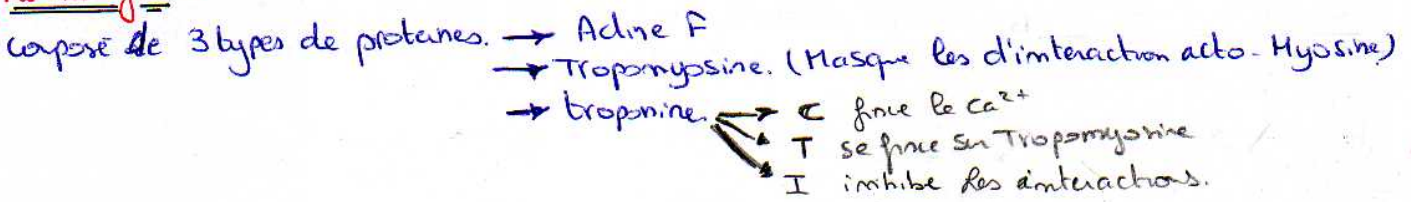 composé de 3 types de proteines. → Actine F
→ Tropomyosine. (Masque les d'interaction acto-Myosine)
→ troponine. → C fixe le Ca²⁺
→ T se fixe sur Tropomyosine
→ I inhibe les interactions.